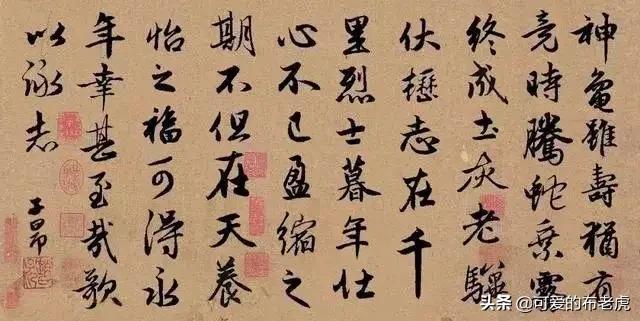 神龜雖壽猶有
竟時騰蛇乘霧
終成土灰老驥
伏櫪志在千
里烈士暮年壮
心不已盈縮之
期不但在天養
怡之福可得永
年幸甚至哉歌
以詠志
子昂
头条 @可爱的布老虎